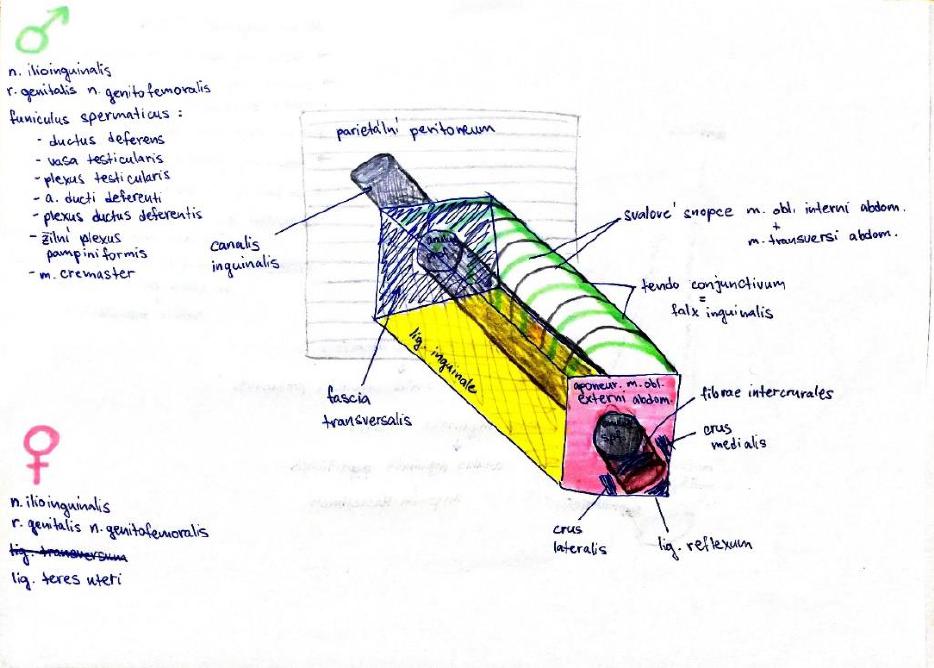 n. ilioinguinalis
r. genitalis n. genitofemoralis
funiculus spermaticus :
- ductus deferens
- vasa testicularis
- plexus testicularis
- a. ducti deferenti
- plexus ductus deferentis
- žilní plexus
pampiniformis
- m. cremaster
parietální peritoneum
canalis
inguinalis
svalové snopce m. obl. interni abdom.
+
m. transversi abdom.
tendo conjunctivum
=
falx inguinalis
lig. inguinale
fascia
transversalis
aponeur. m. obl.
externi abdom.
fibrae intercrurales
crus
medialis
crus
lateralis
lig. reflexum
n. ilioinguinalis
r. genitalis n. genitofemoralis
lig. transversum
lig. teres uteri